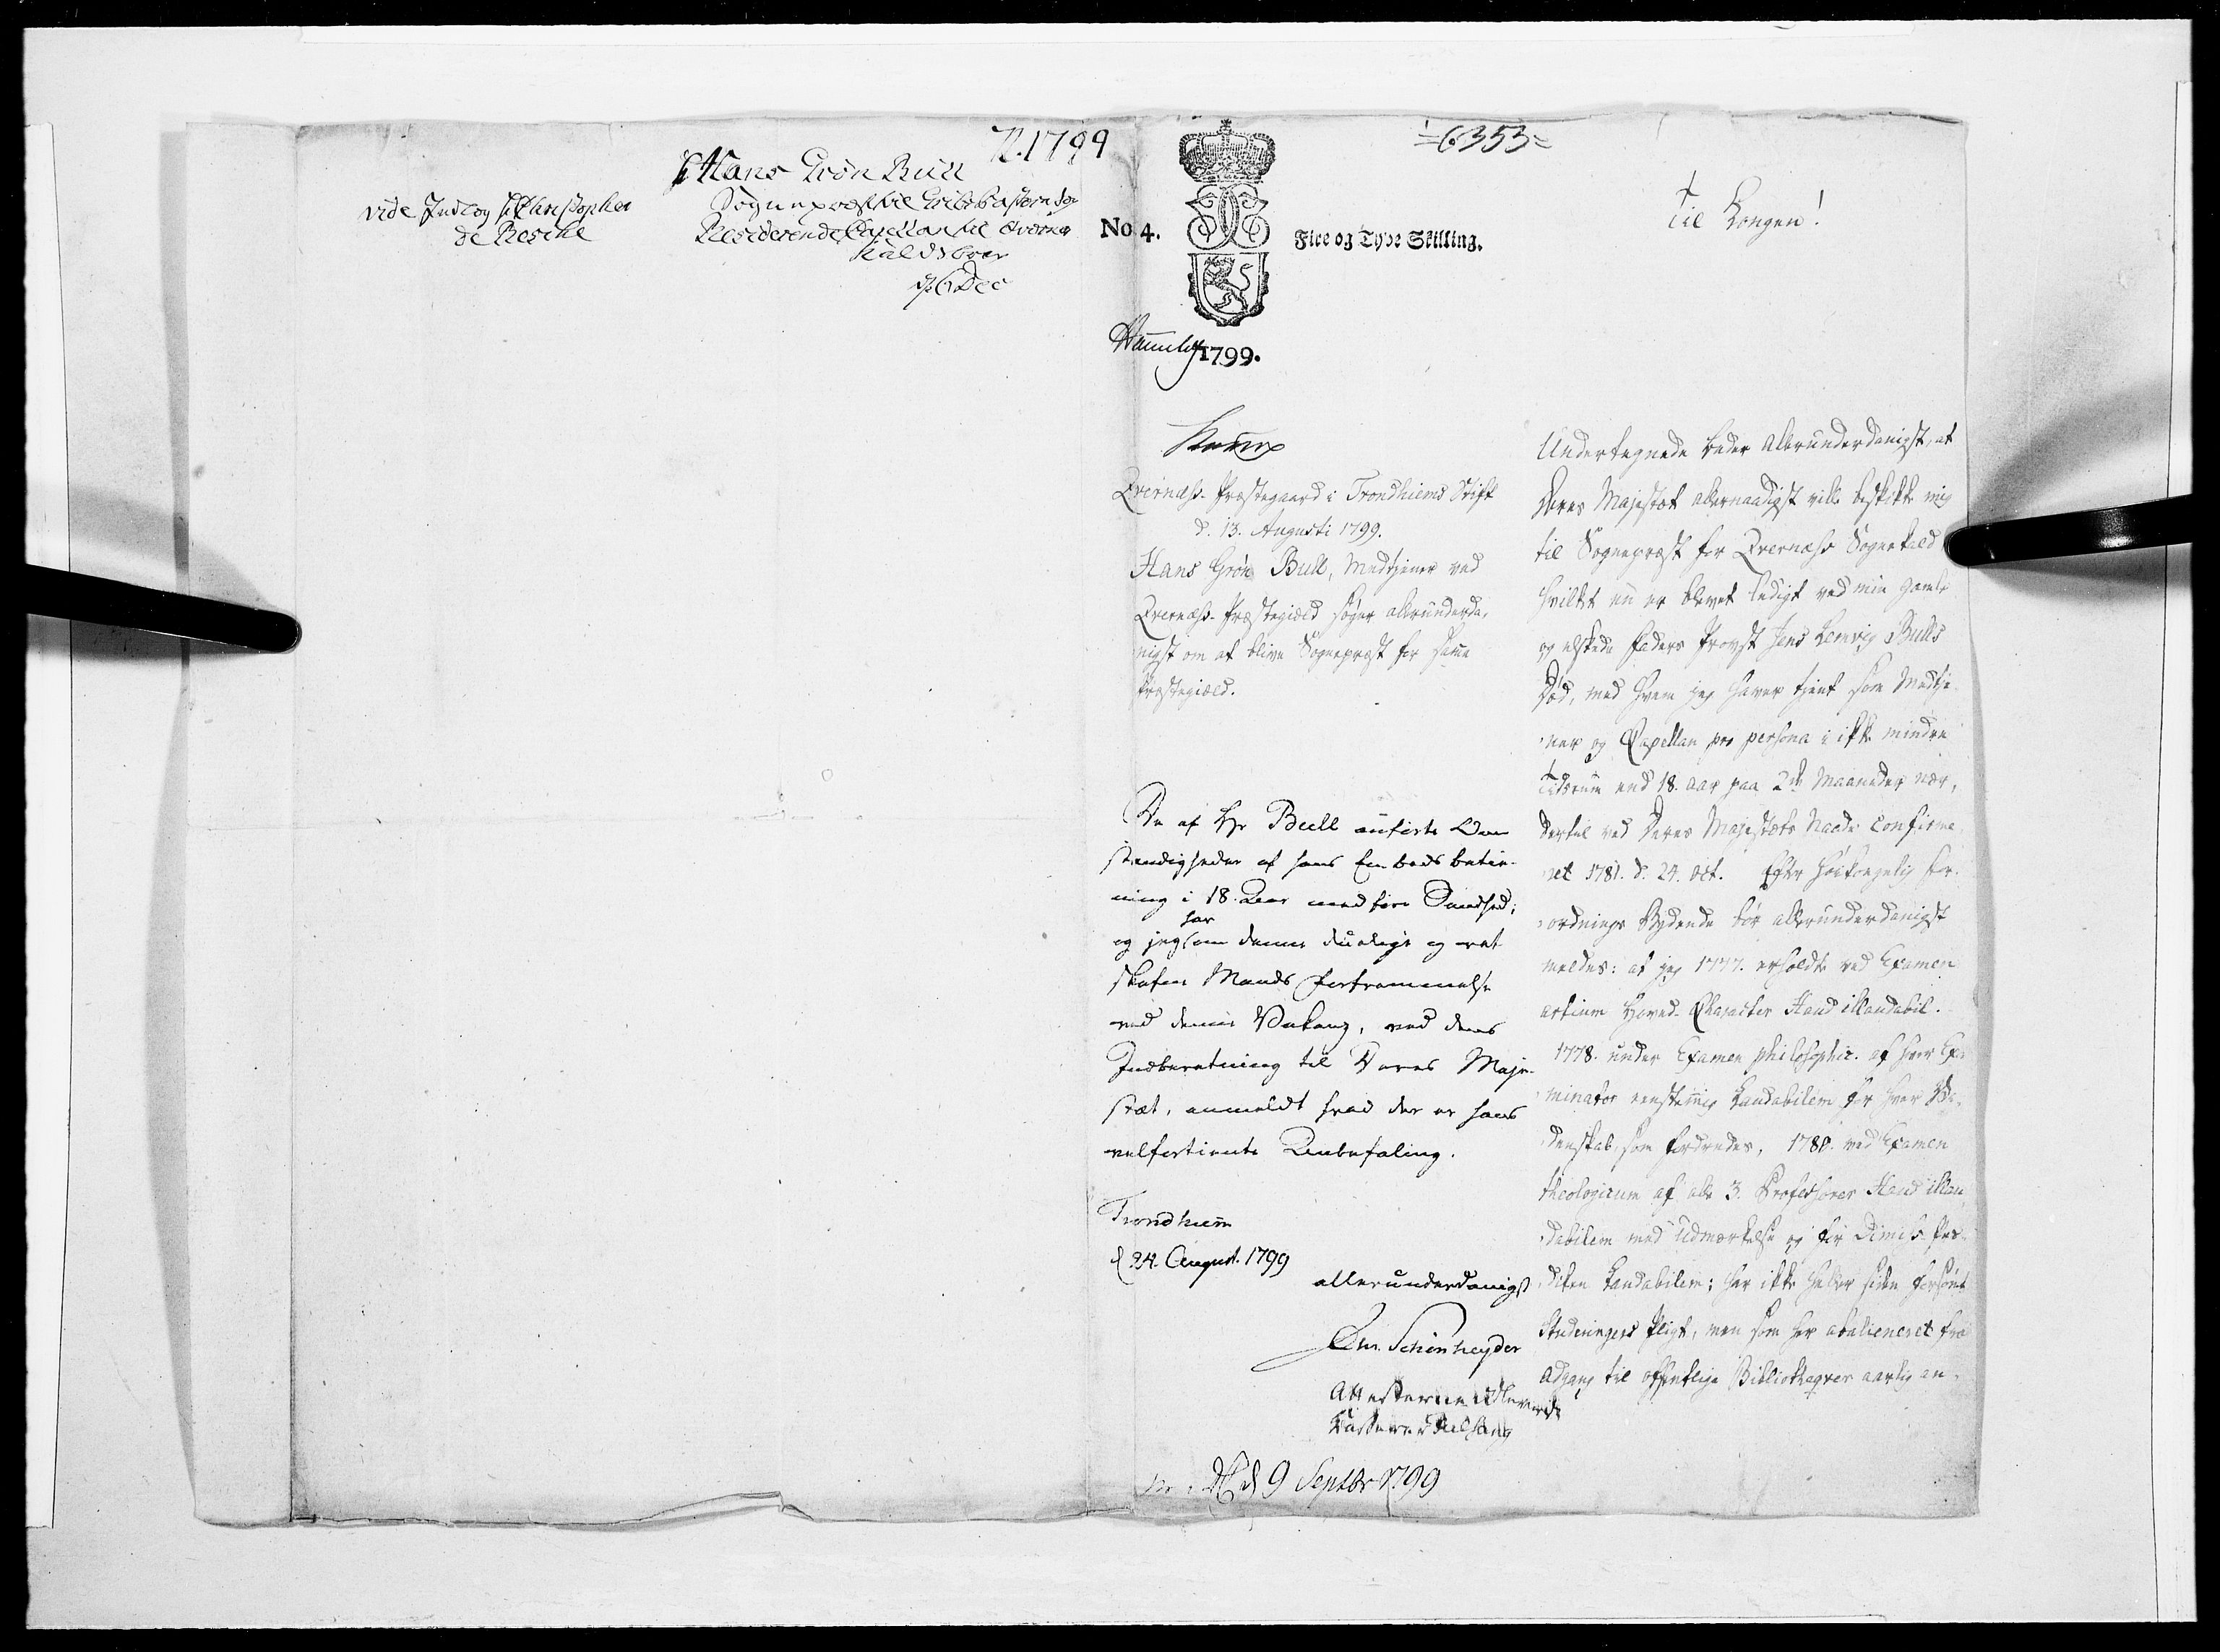 N. 1799
Hans Grøn Bull
Sognepræst til
Residerende Capellan til
Kaldsbrev
d. 6 Dec
vide Indlæg Christopher
de Besche
No 4.
Fire og Tyve Skilling.
1799.
=6353=
Til Kongen!
Qvernæss-Præstegaard i Trondhiems Stift
d. 13. Augusti 1799.
Hans Grøn Bull, Medtjener ved
Qvernæss-Præstegield søger allerunderda,
nigst om at blive Sognepræst for samme
Præstegield.
De af Hr Bull anførte Om
stændigheder af hans Embeds betie-
ning i 18. Aar medføre Sandhed;
og jeg har om denne duelige og ret
skafne Mands
ved denne Vakance, ved dens
Indberetning til Deres Maje-
stæt, anmeldt hvad der er hans
velfortiente Anbefaling.
Trondhiem
d 24. August. 1799
allerunderdanigst
Chr. Schønheyder
d 9 Septbr 1799
Undertegnede beder allerunderdanigst, at
Deres Majestæt allernaadigst ville beskikke mig
til Sognepræst for Qvernæss Sognekald
hvilket nu er blevet ledigt ved min gamle
og elskede Faders Provst Jens Lemvig Bulls
Død, med hvem jeg haver tjent som Medtje
ner og Capellan pro persona i ikke mindre
Tidsrum end 18. Aar paa 2de Maaneder nær,
dertil ved Deres Majestæts Naade Confirme
ret 1781. d. 24. Oct. Efter høikongelig For-
ordnings Bydende bør allerunderdanigst
meldes: at jeg 1777. erholdte ved Examen
artium Hoved-Character Haud illaudabil.
1778. under Examen philosophic. af hver Exa
minator eenstemmig Laudabilem for hver Vi-
denskab, som fordredes, 1780. ved Examen
theologicum af alle 3. Professorer Haud illau
dabilem med Udmærkelse og for Dimiss-Præ-
diken Laudabilem; har ikke heller siden forsømt
Studeringers Pligt, men som her abalieneret fra
Adgang til offentlige Bibliotheqver aarlig an-